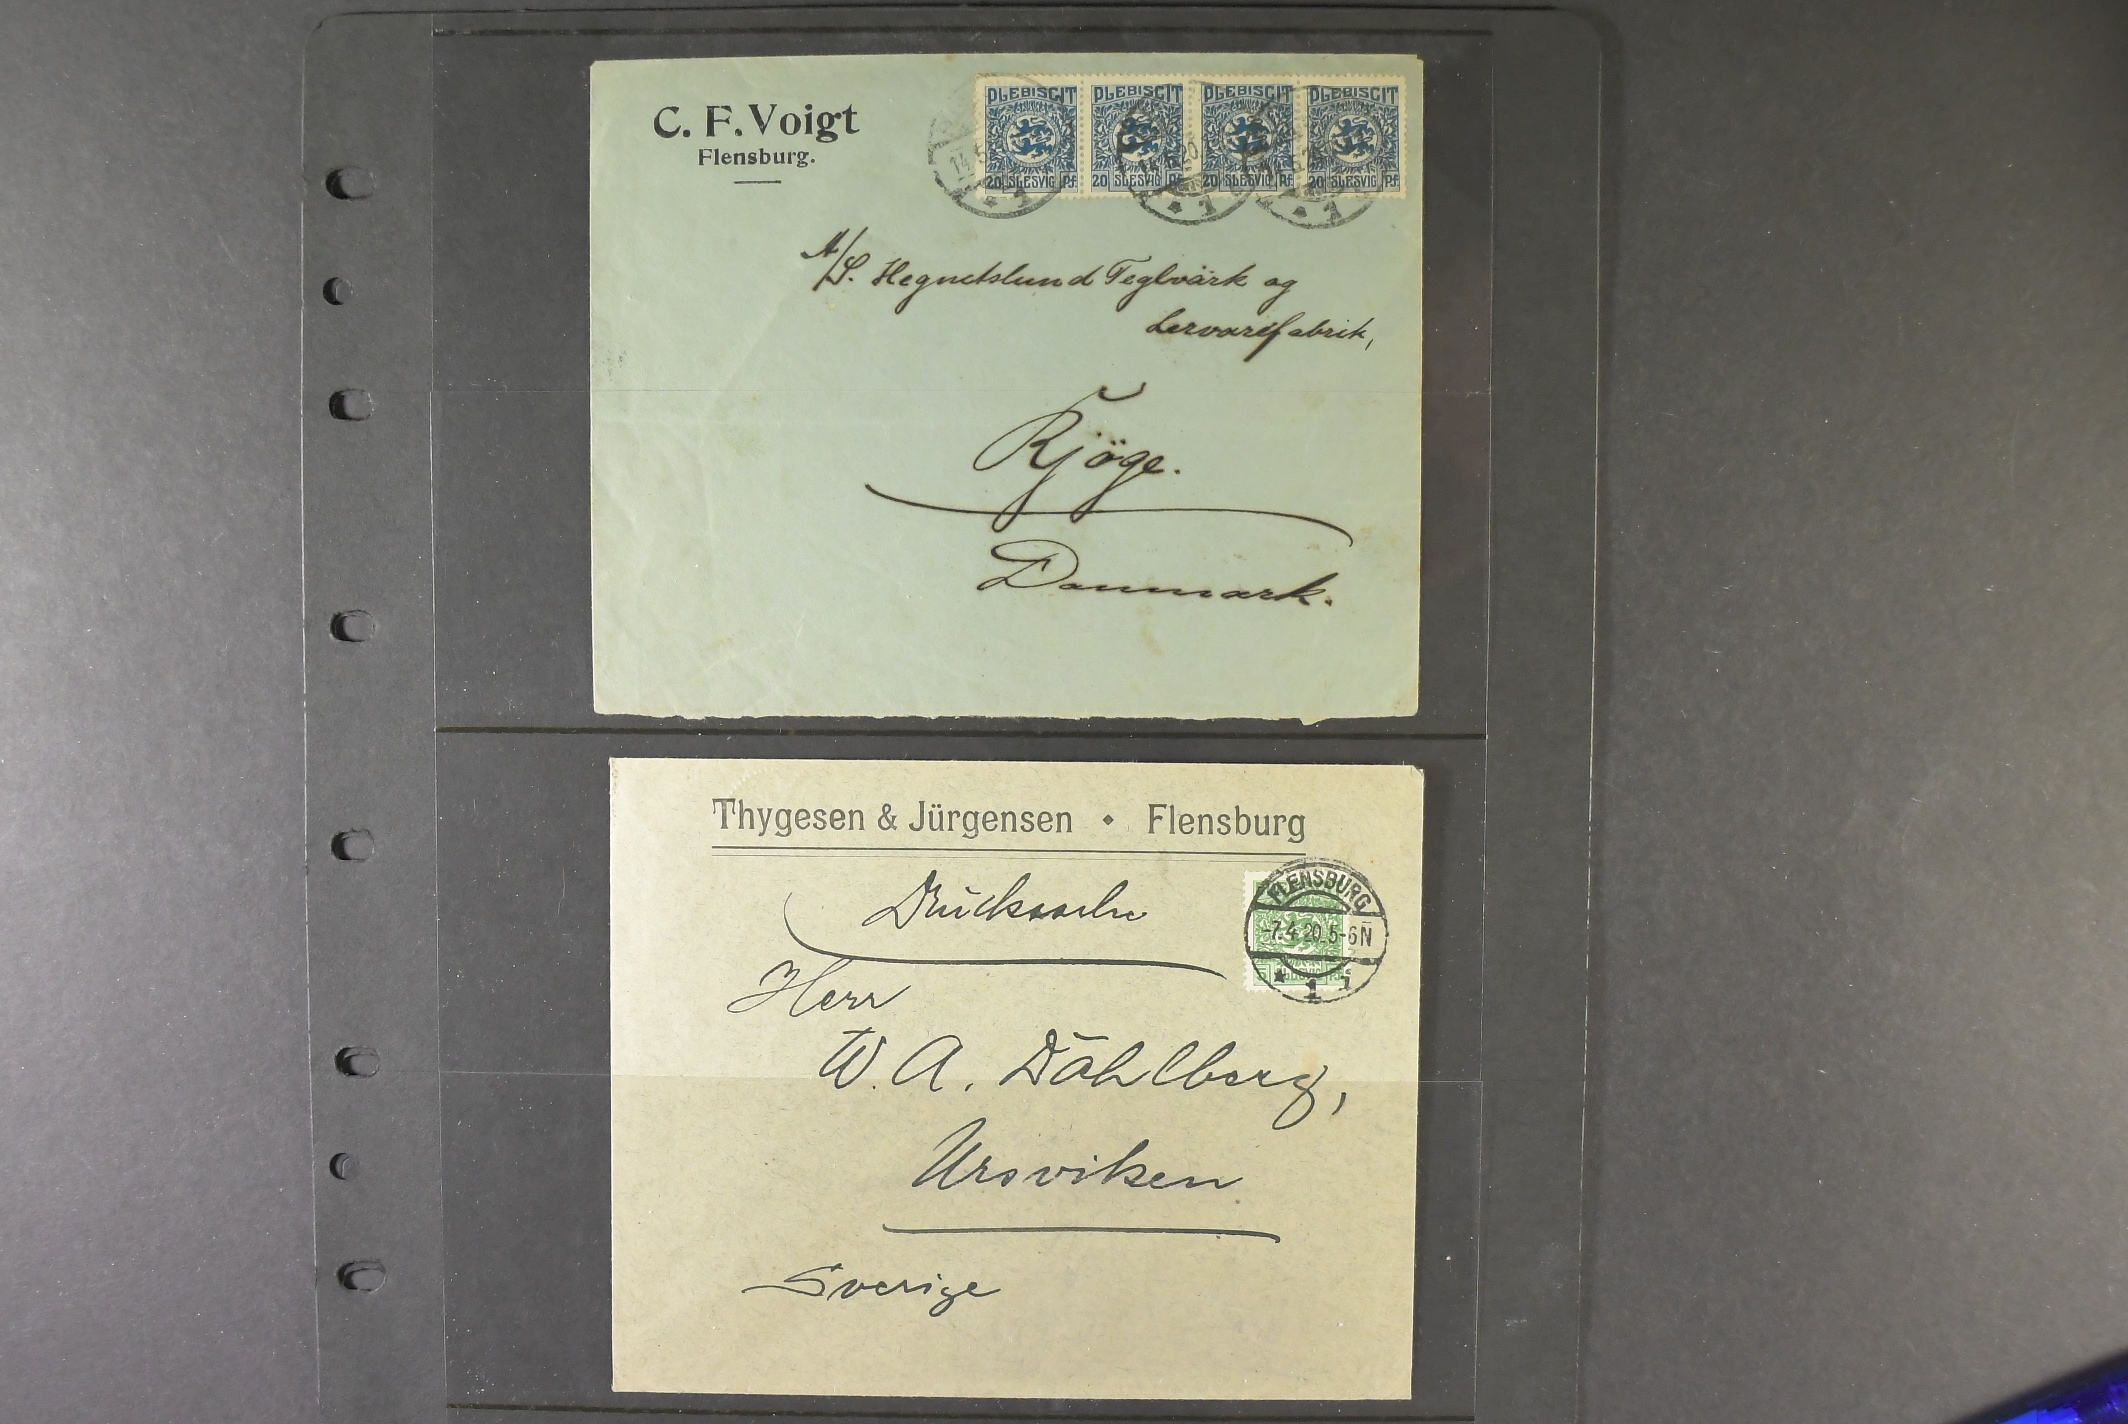 C. F. Voigt
Flensburg.
PLEBISCIT PLEBISCIT PLEBISCIT PLEBISCIT
20 SLESVIG Pf 20 SLESVIG Pf 20 SLESVIG Pf 20 SLESVIG Pf
1 1 1
A/S. Hegnetslund Teglvärk og
Lervarefabrik,
Kjöge.
Danmark.
Thygesen & Jürgensen • Flensburg
Drucksache
FLENSBURG
-7.4.20.5-6N
* 1 i
Herr
W. A. Dahlberg,
Ursviken
Sverige